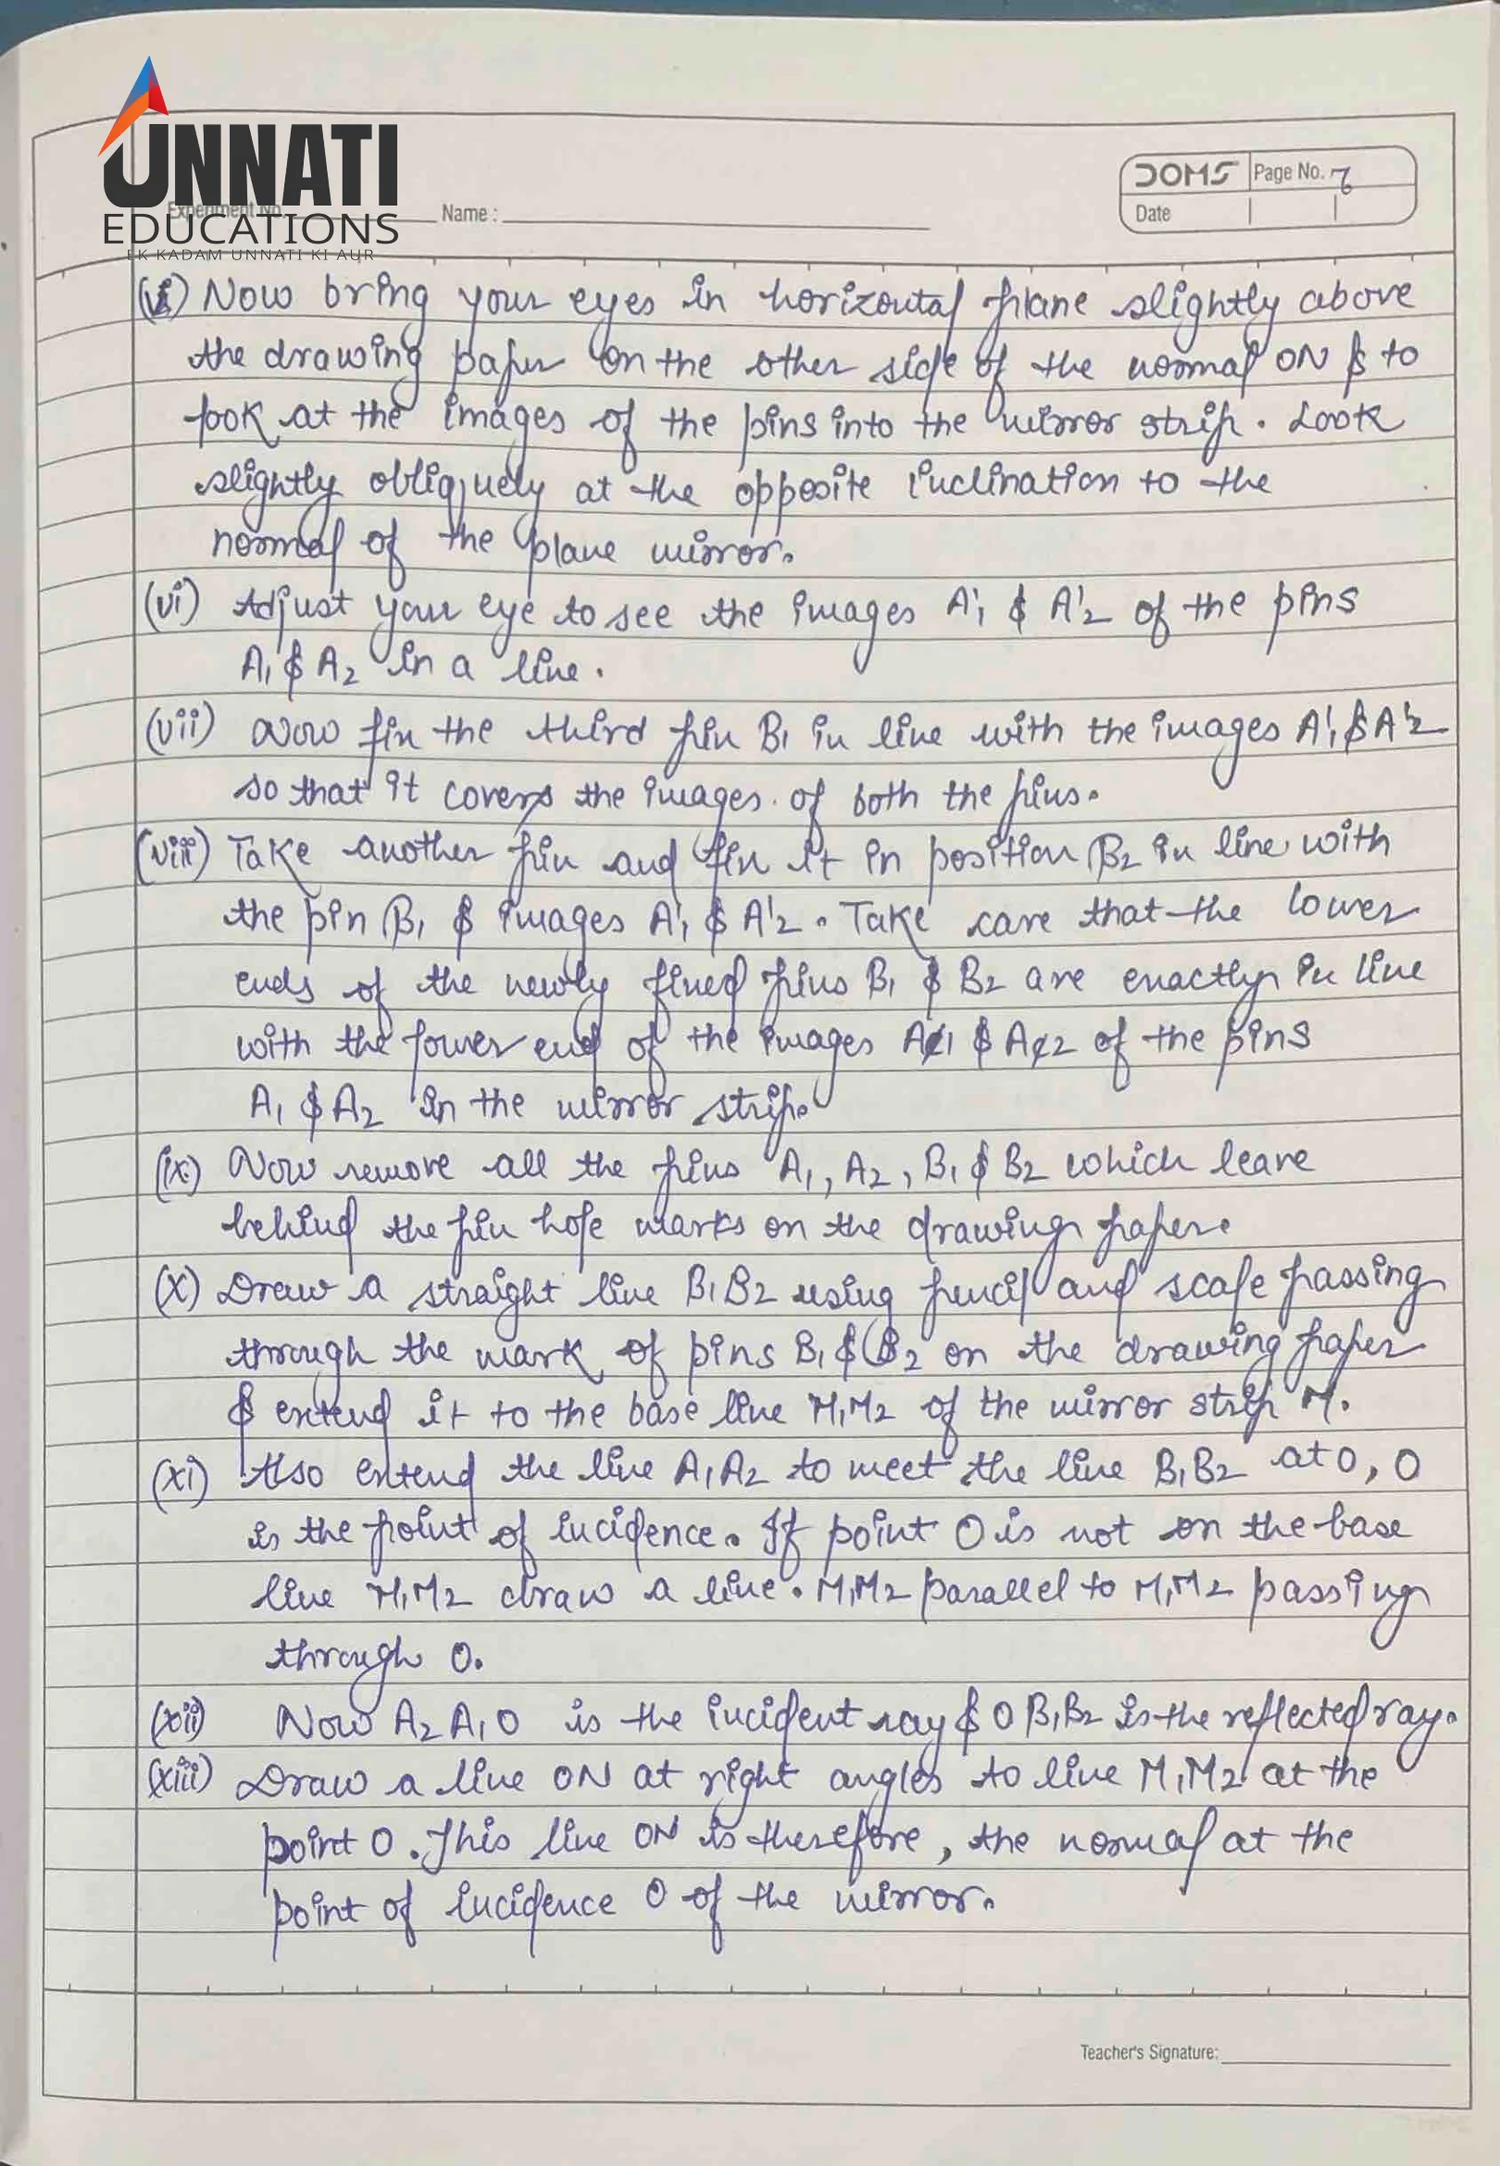 UNNATI
EDUCATIONS
EK KADAM UNNATI KI AUR
Experiment No. Name :
DOMS Page No. 7
Date
(v) Now bring your eyes in horizontal plane slightly above
the drawing paper on the other side of the normal ON & to
look at the images of the pins into the mirror strip. Look
slightly obliquely at the opposite inclination to the
normal of the plane mirror.
(vi) Adjust your eye to see the images A'1 & A'2 of the pins
A1 & A2 in a line.
(vii) Now fix the third pin B1 in line with the images A'1 & A'2
so that it covers the images of both the pins.
(viii) Take another pin and fix it in position B2 in line with
the pin B1 & images A'1 & A'2. Take care that the lower
ends of the newly fixed pins B1 & B2 are exactly in line
with the lower end of the images A1 & A2 of the pins
A1 & A2 in the mirror strip.
(ix) Now remove all the pins A1, A2, B1 & B2 which leave
behind the pin hole marks on the drawing paper.
(x) Draw a straight line B1B2 using pencil and scale passing
through the mark of pins B1 & B2 on the drawing paper
& extend it to the base line M1M2 of the mirror strip M.
(xi) Also extend the line A1A2 to meet the line B1B2 at O, O
is the point of incidence. If point O is not on the base
line M1M2 draw a line. M1M2 parallel to M1M2 passing
through O.
(xii) Now A2A1O is the incident ray & OB1B2 is the reflected ray.
(xiii) Draw a line ON at right angles to line M1M2 at the
point O. This line ON is therefore, the normal at the
point of incidence O of the mirror.
Teacher's Signature: